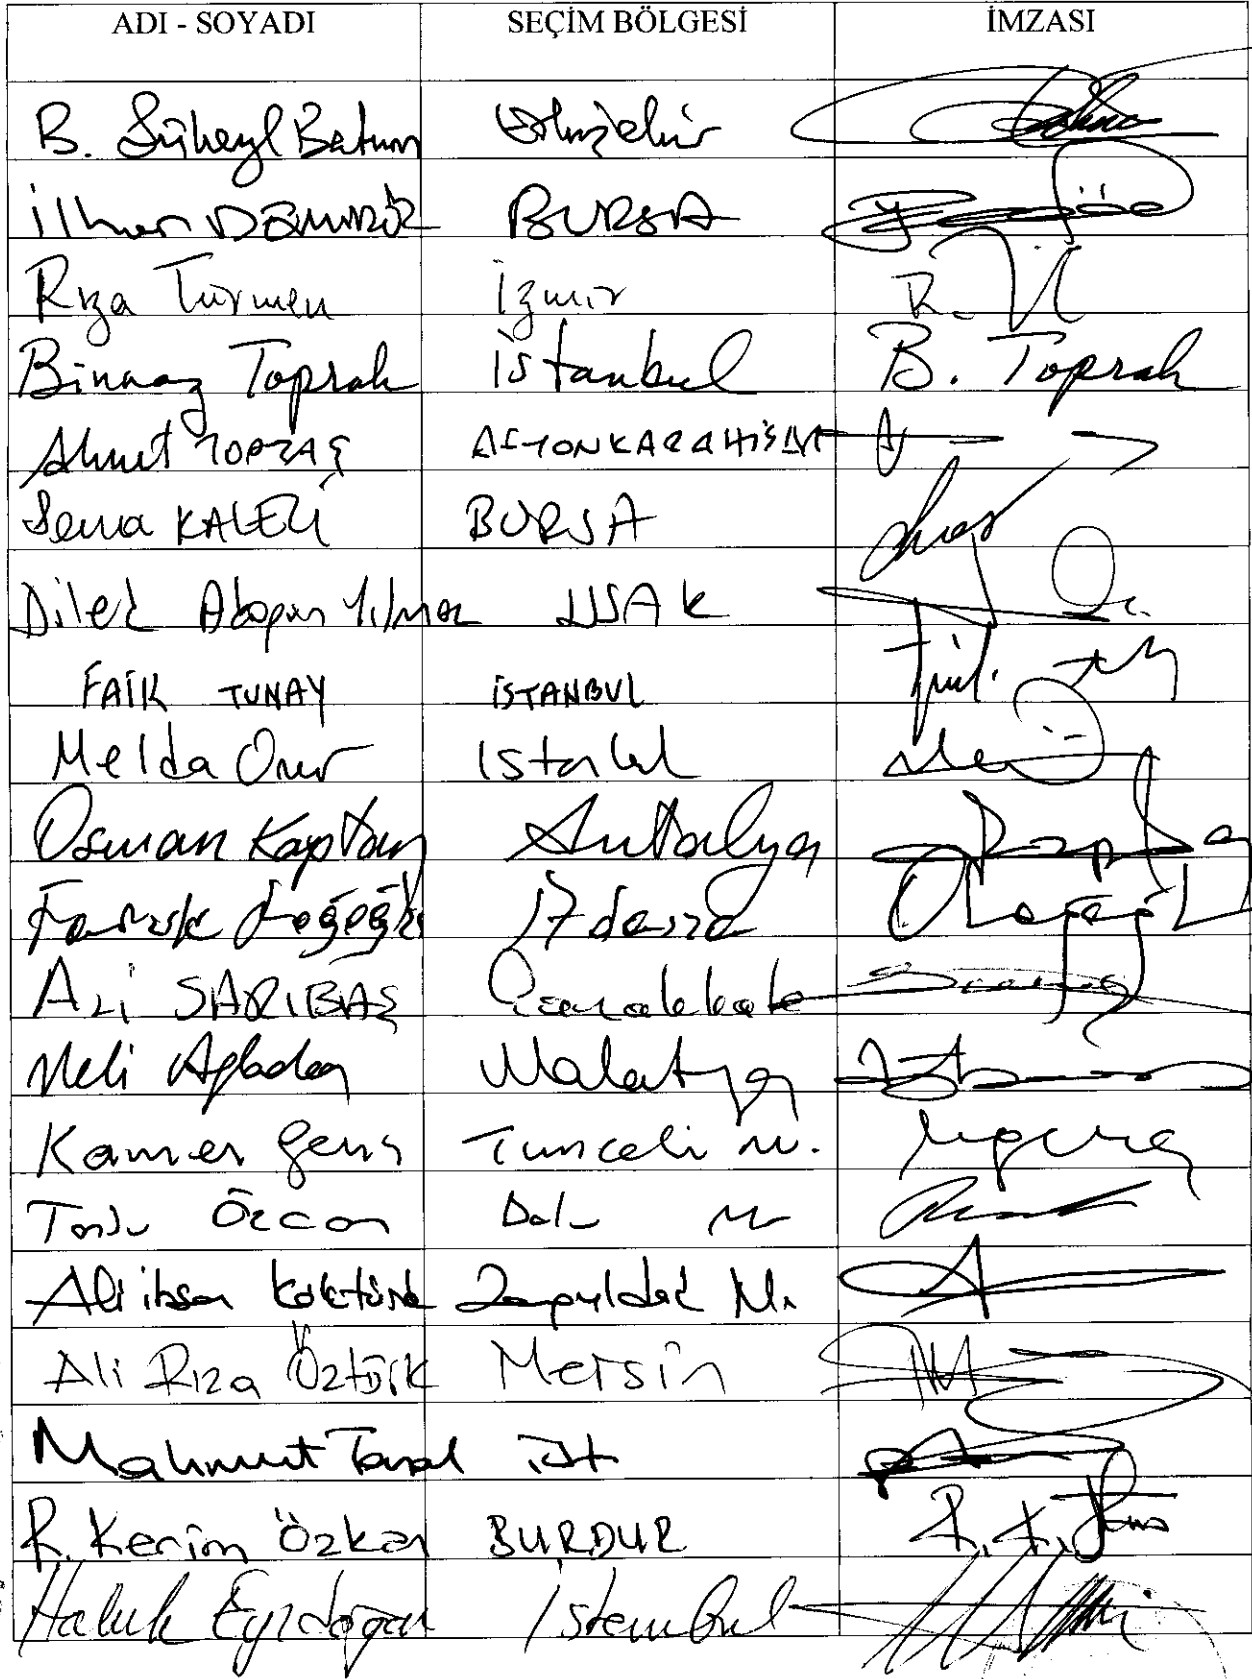 ADI - SOYADI SEÇİM BÖLGESİ İMZASI
B. Süheyl Batum Eskişehir
İlhan DEMİRÖZ BURSA
Rıza Türmen İzmir
Binnaz Toprak İstanbul B. Toprak
Ahmet TOPTAŞ AFYONKARAHİSAR
Sena KALELİ BURSA
Dilek Akagün Yılmaz UŞAK
FAİK TUNAY İSTANBUL
Melda Onur Istanbul
Osman Kaptan Antalya
Faruk Loğoğlu Adana
Ali SARIBAŞ Çanakkale
Veli Ağbaba Malatya
Kamer Genç Tunceli M.
Tanju Özcan Bolu M
Ali ihsan Köktürk Zonguldak M.
Ali Rıza Öztürk Mersin
Mahmut Tanal ist
R. Kerim Özkan BURDUR
Haluk Eyidoğan İstanbul